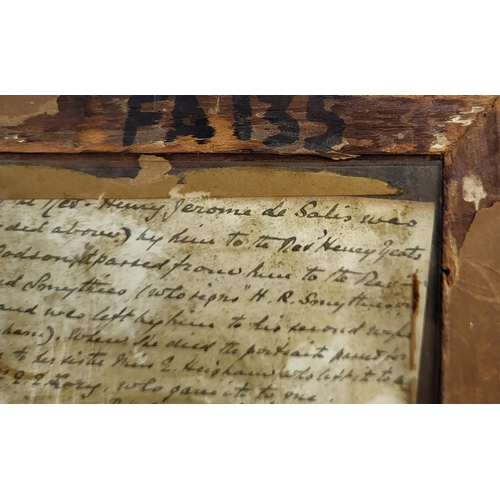 FA 135
Rev. Henry Jerome de Salis was
above) by him to the Revd Henry Yeats
& passed from him to the Rev
Smythies (who signs "H. R. Smythies
and was left by him to his second wife
When she died the portrait passed
to her sister Miss E. Heigham who left it to
who gave it to me.